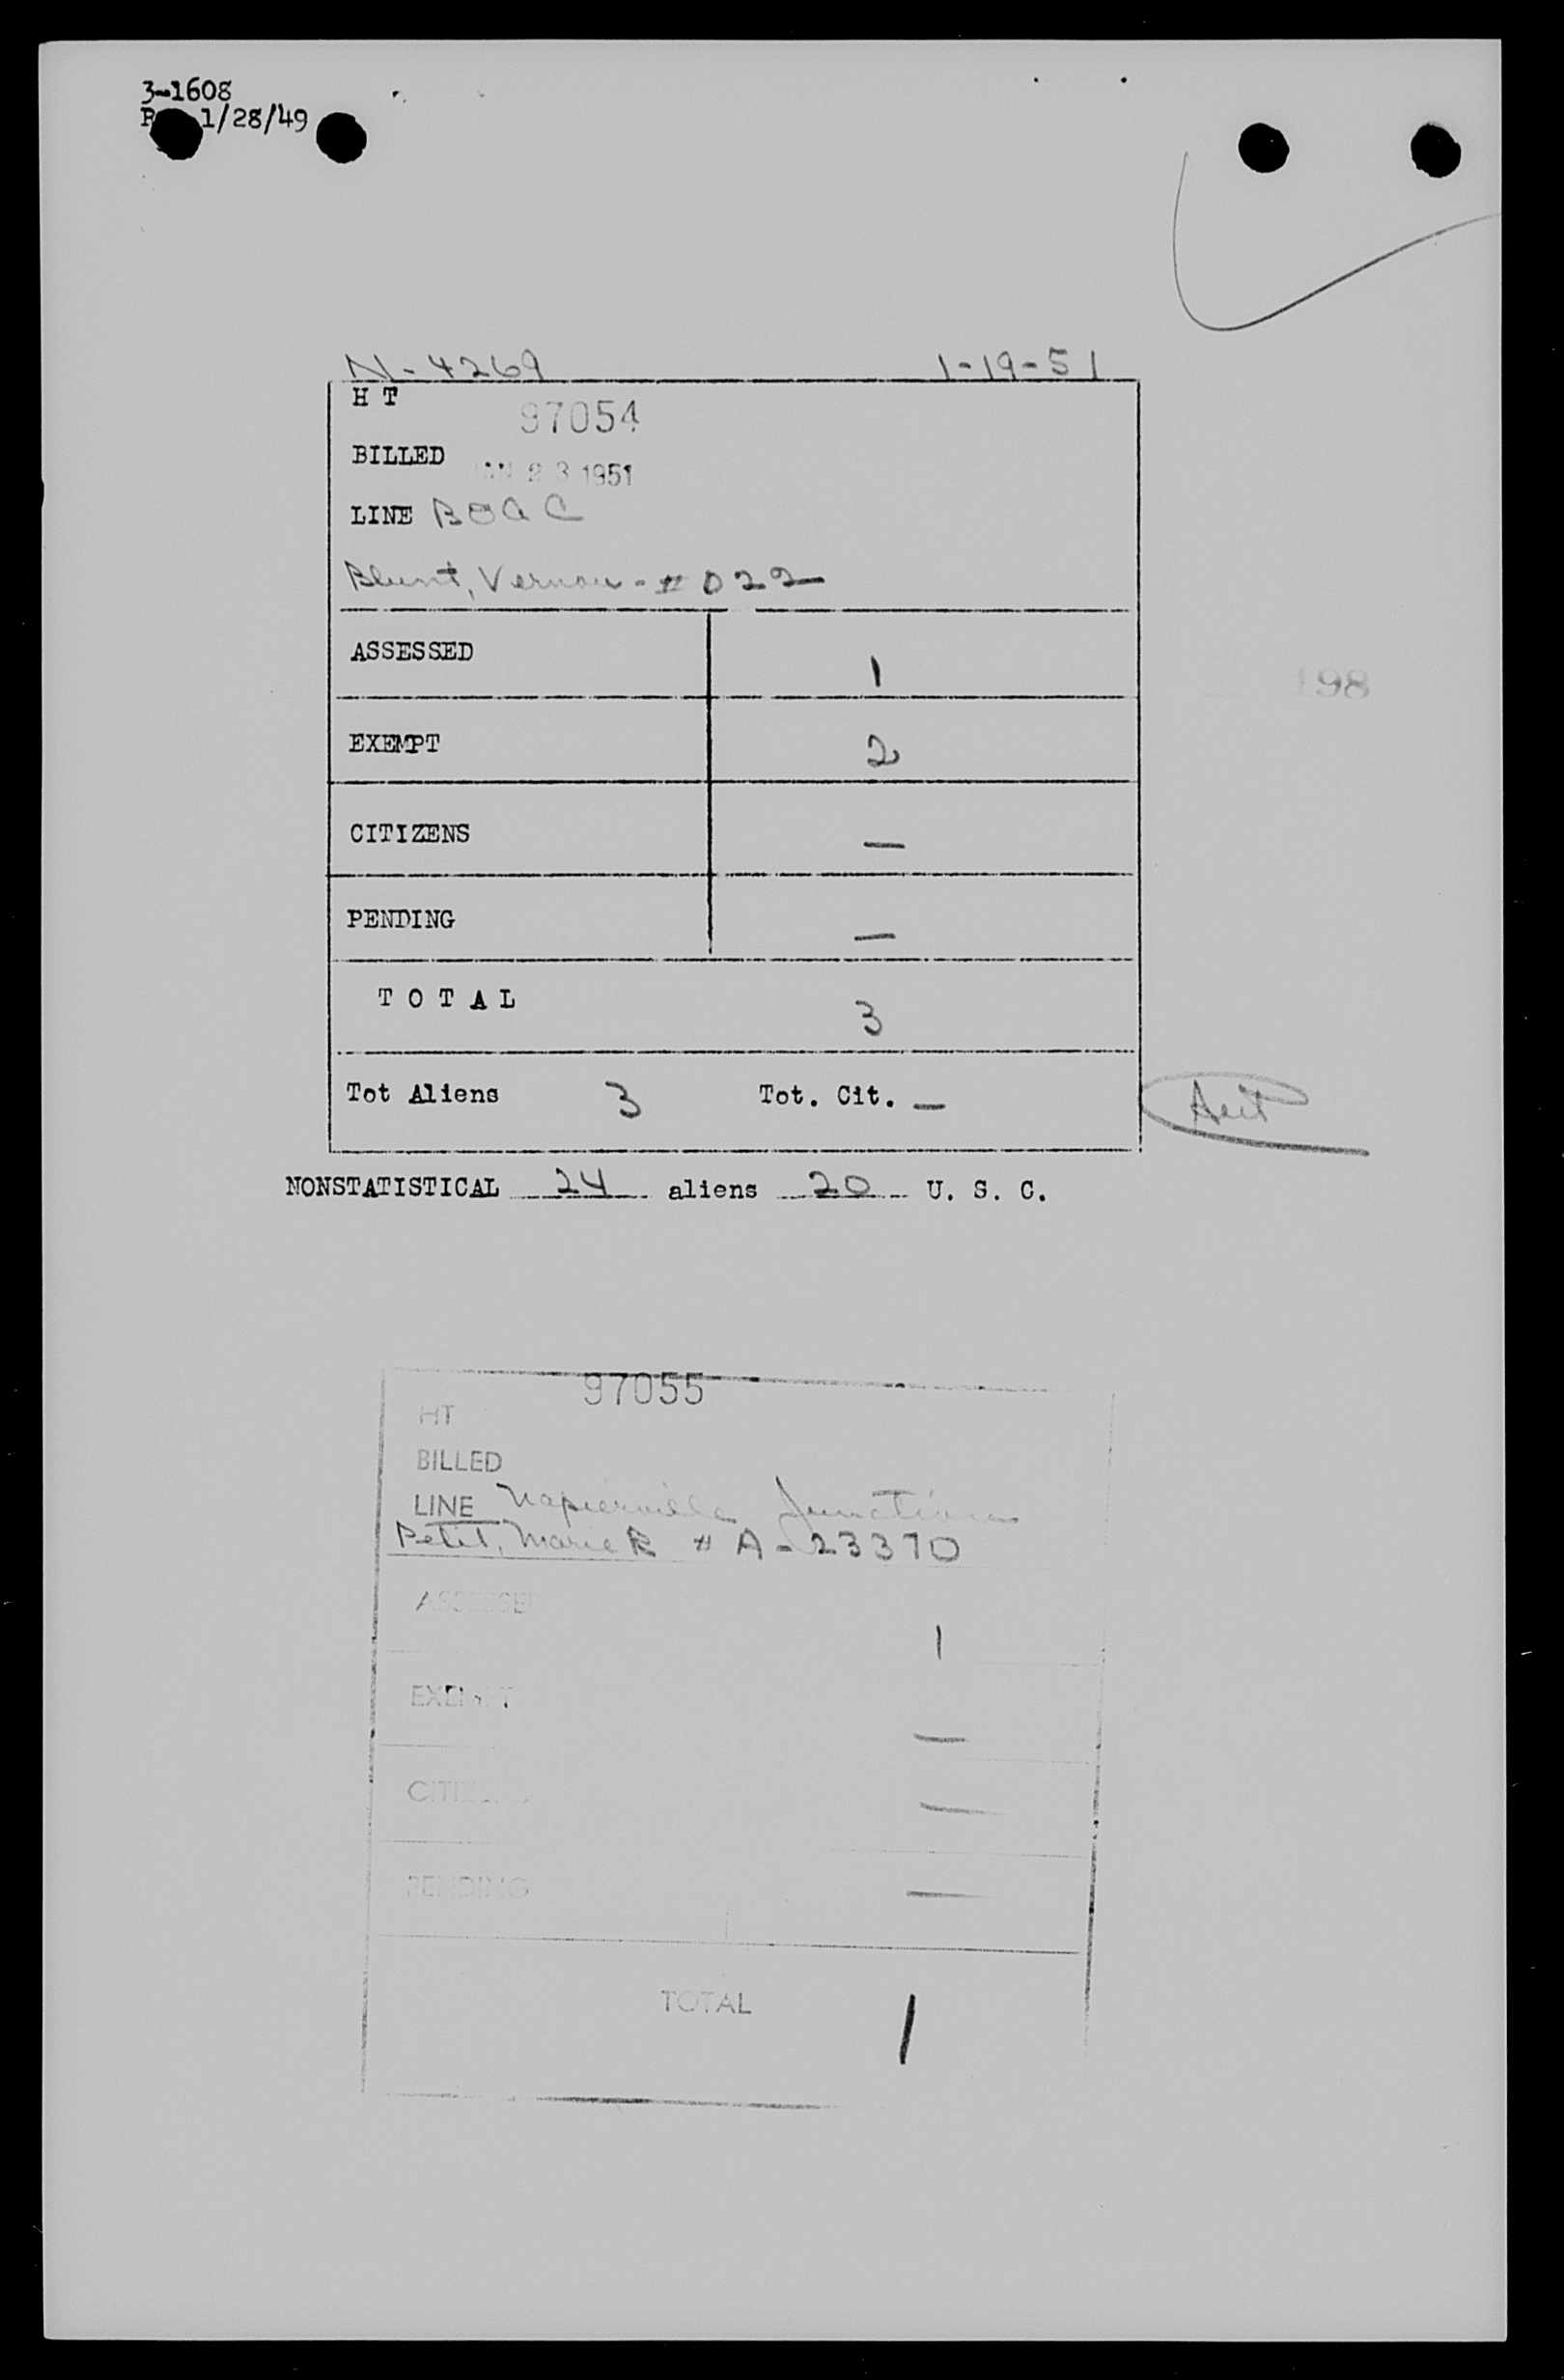 3-1608
1/28/49
N-4269 1-19-51
H T 97054
BILLED 23 1951
LINE BOAC
Blunt, Vernon - # 022
ASSESSED 1
198
EXEMPT 2
CITIZENS —
PENDING —
TOTAL 3
Tot Aliens 3 Tot. Cit. —
NONSTATISTICAL 24 aliens 20 U. S. C.
97055
HT
BILLED
LINE Napierville Junction
Petit, Marie R # A-23370
ASSESSED 1
EXEMPT —
CITIZENS —
PENDING —
TOTAL 1